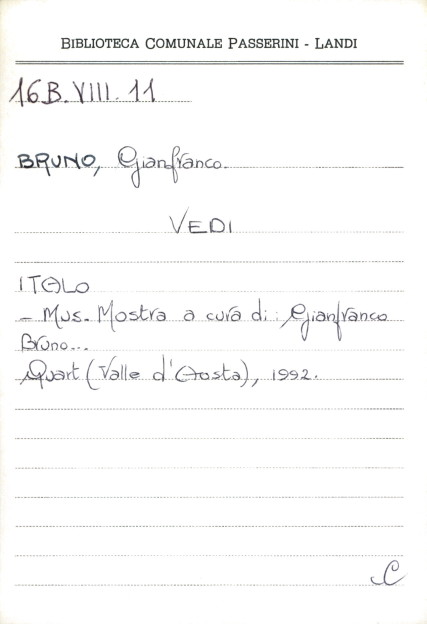 BIBLIOTECA COMUNALE PASSERINI - LANDI
16B.VIII.11
BRUNO, Gianfranco.
VEDI
ITALO
- Mus. Mostra a cura di: Gianfranco
Bruno...
Quart (Valle d'Aosta), 1992.
C